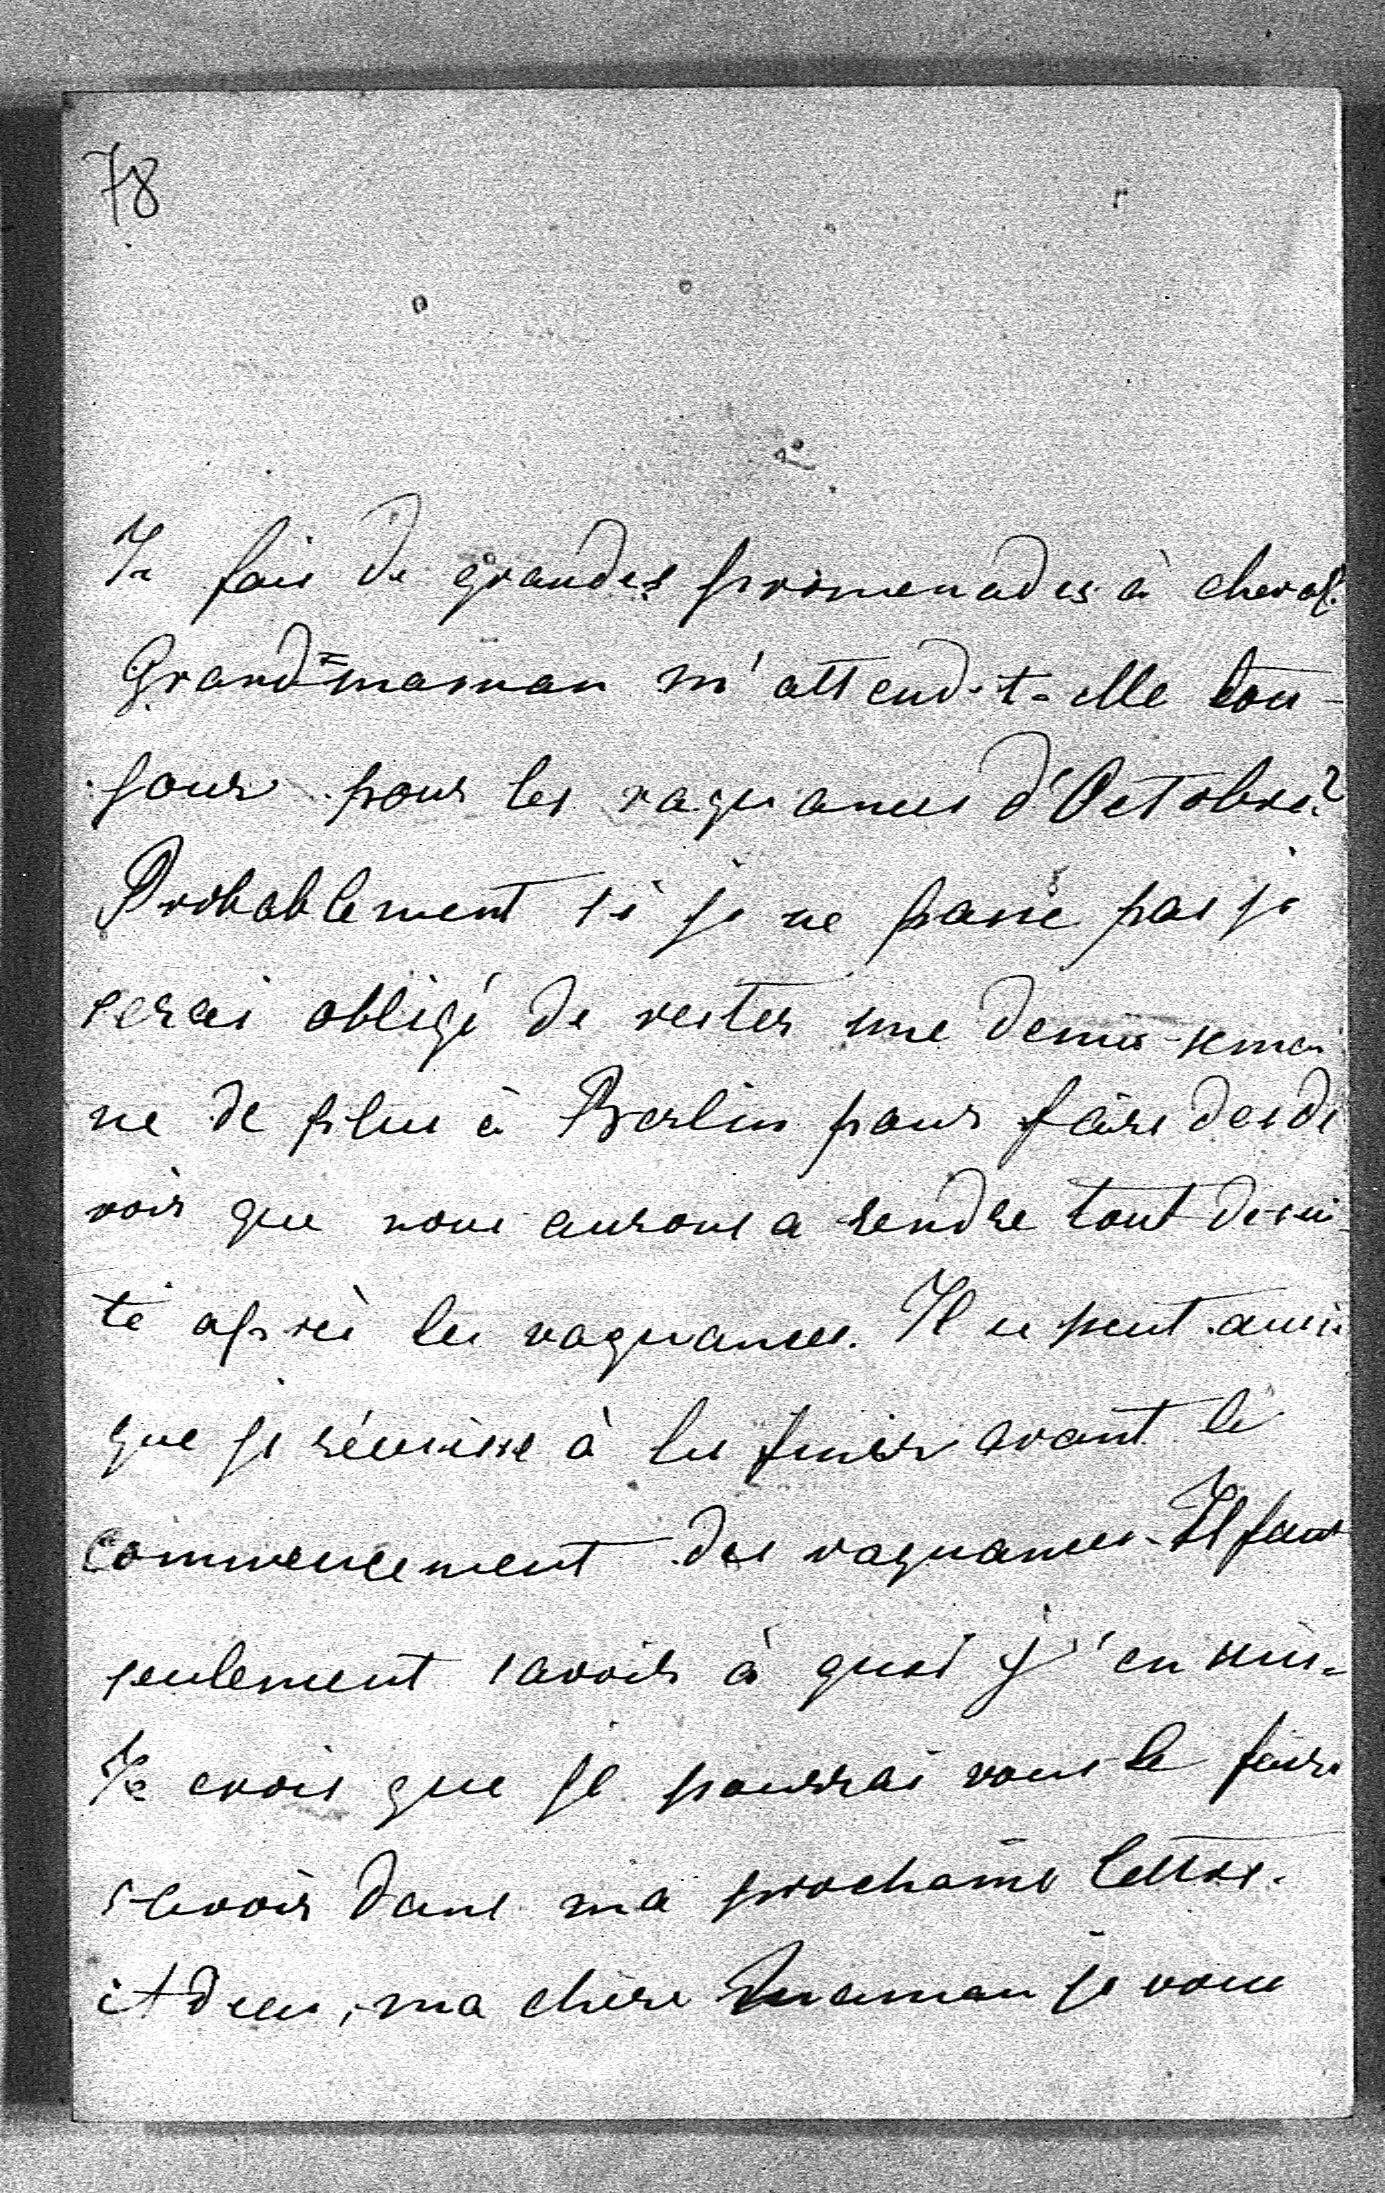 78
Je fais de grandes promenades à cheval.
Grand=maman m'attend-t-elle tou-
jours pour les vaquances d'Octobre?
Probablement si je ne passe pas je
serai obligé de rester une demie-semai
ne de plus à Berlin pour faire des de
voirs que nous aurons a rendre tout de sui-
te après les vaquances. Il se peut aussi
que je réussisse à les finir avant le
commencement des vaquances. Il faut
seulement savoir à quoi j'en suis.
Je crois que je pourrai vous le faire
savoir dans ma prochaine lettre.
Adieu, ma chère Maman je vous